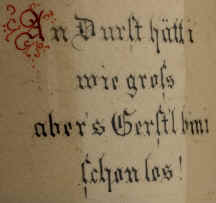 An Durst hätt i
wie groß
aber's Gerst'l bini
schon los!